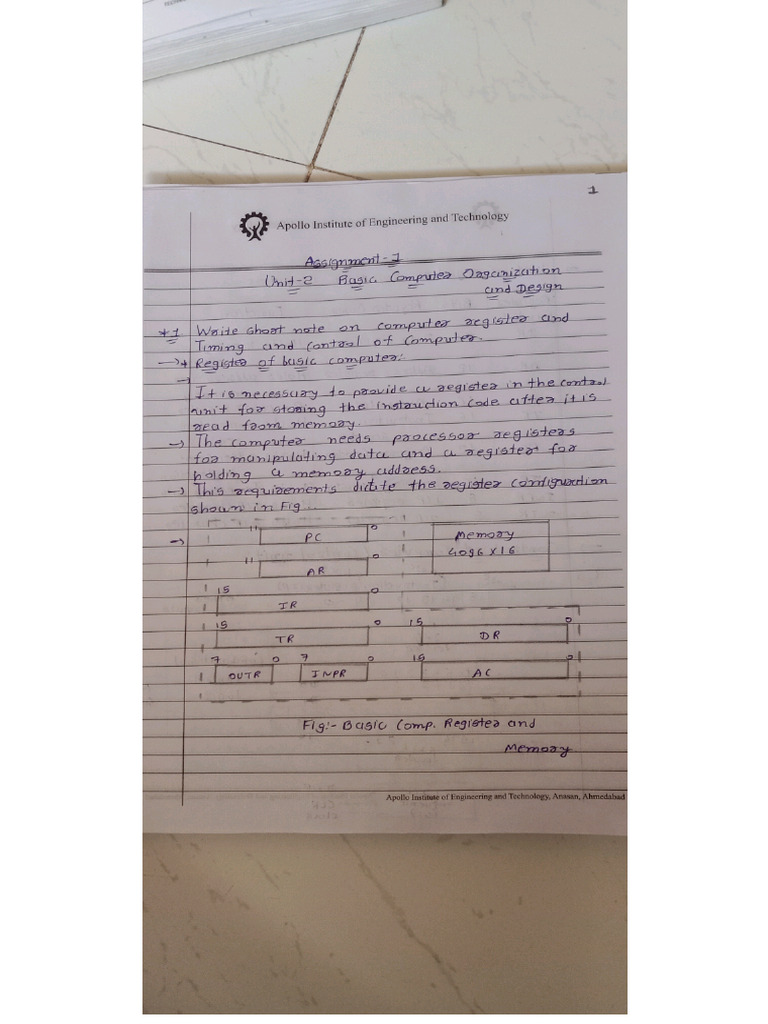 1
Apollo Institute of Engineering and Technology
Assignment-1
Unit-2 Basic Computer Organization
and Design
*1 Write short note on computer register and
Timing and control of computer.
→* Register of basic computer:
→
It is necessary to provide a register in the control
unit for storing the instruction code after it is
read from memory.
→ The computer needs processor registers
for manipulating data and a register for
holding a memory address.
→ This requirements dictite the register configuration
shown in Fig...
→ 11 PC 0 Memory
4096 X 16
11 AR 0
15 IR 0
15 TR 0 15 DR 0
7 OUTR 0 7 INPR 0 15 AC 0
Fig:- Basic Comp. Register and
Memory
Apollo Institute of Engineering and Technology, Anasan, Ahmedabad